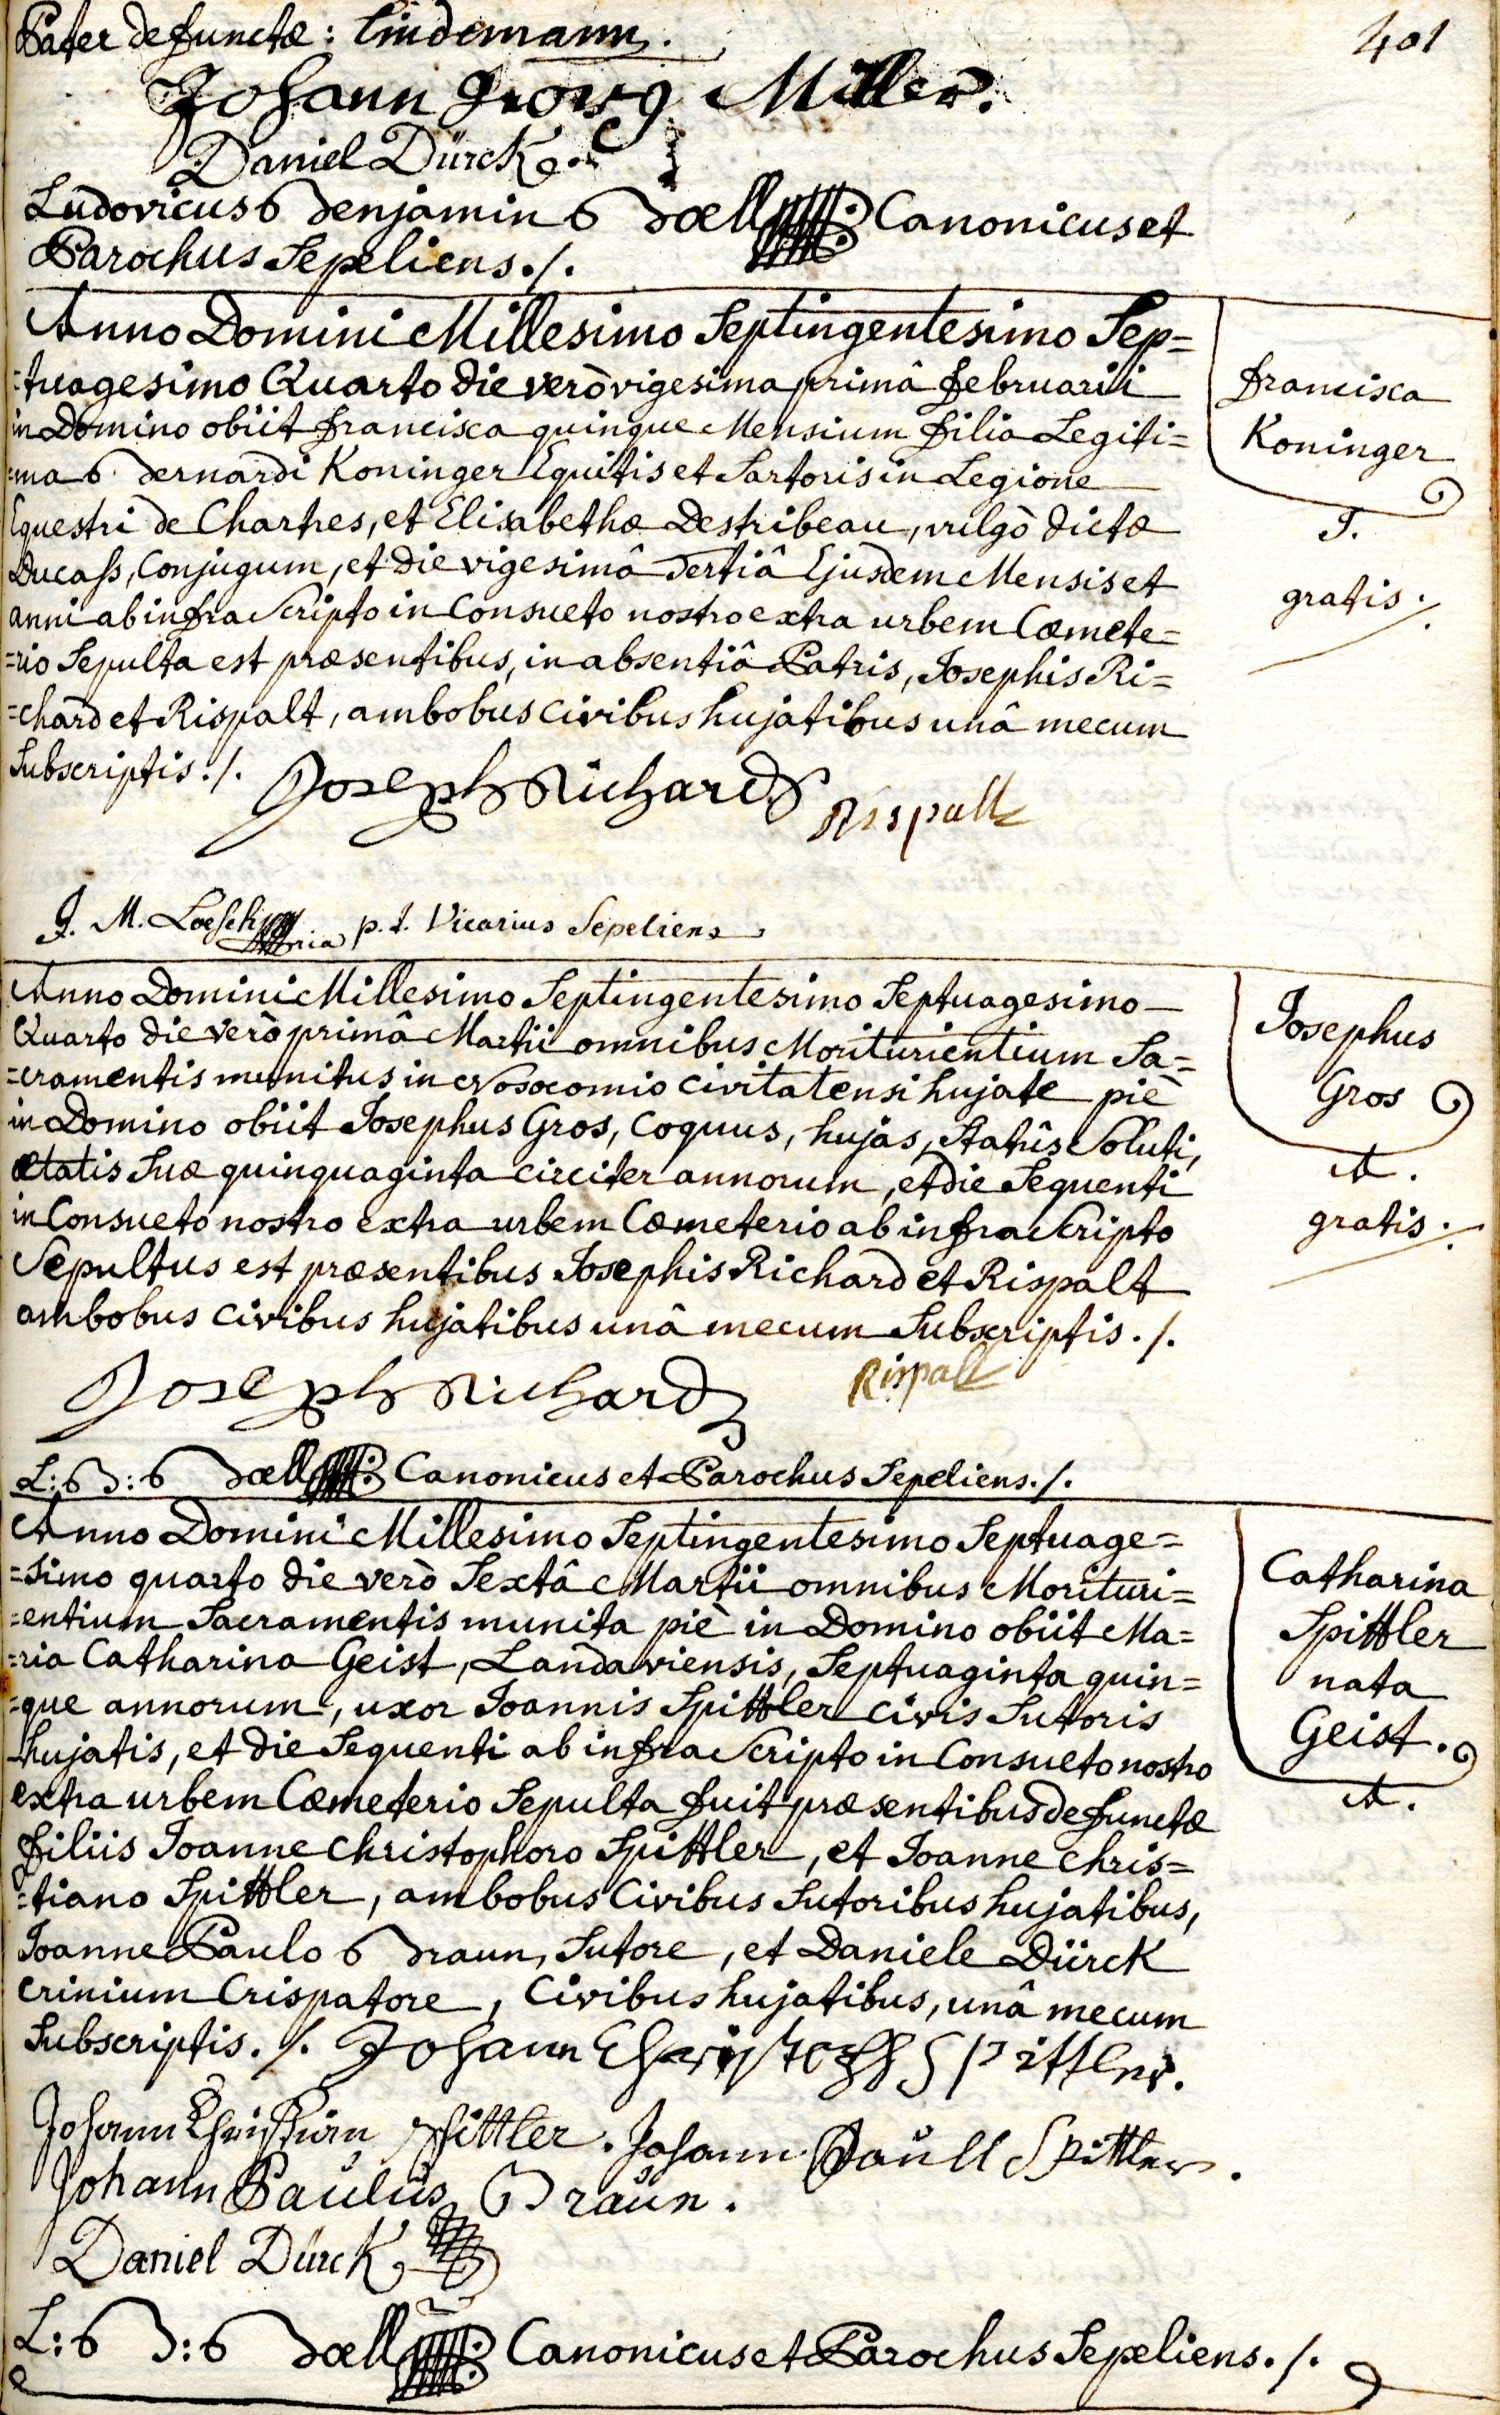 401
Pater defunctæ: Lindemann.
Johann Georg Miller.
Daniel Dürck.
Ludovicus Benjamin Boell Canonicus et
Parochus Sepeliens./.
Anno Domini Millesimo Septingentesimo Sep=
=tuagesimo Quarto die verò vigesima primâ februarii
in Domino obiit francisca quinque Mensium filia Legiti=
=ma Bernardi Koninger Equitis et Sartoris in Legione
Equestri de Chartres, et Elisabethæ Destribeau, vulgò dictæ
Ducass, Conjugum, et die vigesimâ Tertiâ Ejusdem Mensis et
anni ab infra Scripto in Consueto nostro extra urbem Cæmete=
=rio Sepulta est præsentibus, in absentiâ Patris, Josephis Ri=
=chard et Rispalt, ambobus civibus hujatibus unâ mecum
Subscriptis./.
francisca
Koninger
J.
gratis./.
Joseph Richard Rispalt
J. M. Loesch p. t. Vicarius Sepeliens
Anno Domini Millesimo Septingentesimo Septuagesimo
Quarto die verò primâ Martii omnibus Moriturientium Sa=
=cramentis munitus in Nosocomio civitatensi hujate piè
in Domino obiit Josephus Gros, Coquus, hujas, Statûs Soluti,
ætatis Suæ quinquaginta circiter annorum, et die Sequenti
in Consueto nostro extra urbem Cæmeterio ab infra Scripto
Sepultus est præsentibus Josephis Richard et Rispalt
ambobus civibus hujatibus unâ mecum Subscriptis./.
Josephus
Gros
A.
gratis./.
Joseph Richard Rispalt
L: B: Boell Canonicus et Parochus Sepeliens./.
Anno Domini Millesimo Septingentesimo Septuage=
=simo quarto die verò Sextâ Martii omnibus Morituri=
=entium Sacramentis munita piè in Domino obiit Ma=
=ria Catharina Geist, Landaviensis, Septuaginta quin=
=que annorum, uxor Joannis Spittler civis Sutoris
hujatis, et die Sequenti ab infra Scripto in Consueto nostro
extra urbem Cæmeterio Sepulta fuit præsentibus defunctæ
filiis Joanne Christophoro Spittler, et Joanne Chris=
=tiano Spittler, ambobus Civibus Sutoribus hujatibus,
Joanne Paulo Braun, Sutore, et Daniele Dürck
Crinium Crispatore, Civibus hujatibus, unâ mecum
Subscriptis./. Johann Christoph Spittler.
Catharina
Spittler
nata
Geist.
A.
Johann Christian Spittler. Johann Paull Spittler.
Johann Paulüs Braün.
Daniel Dürck
L: B: Boell Canonicus et Parochus Sepeliens./.